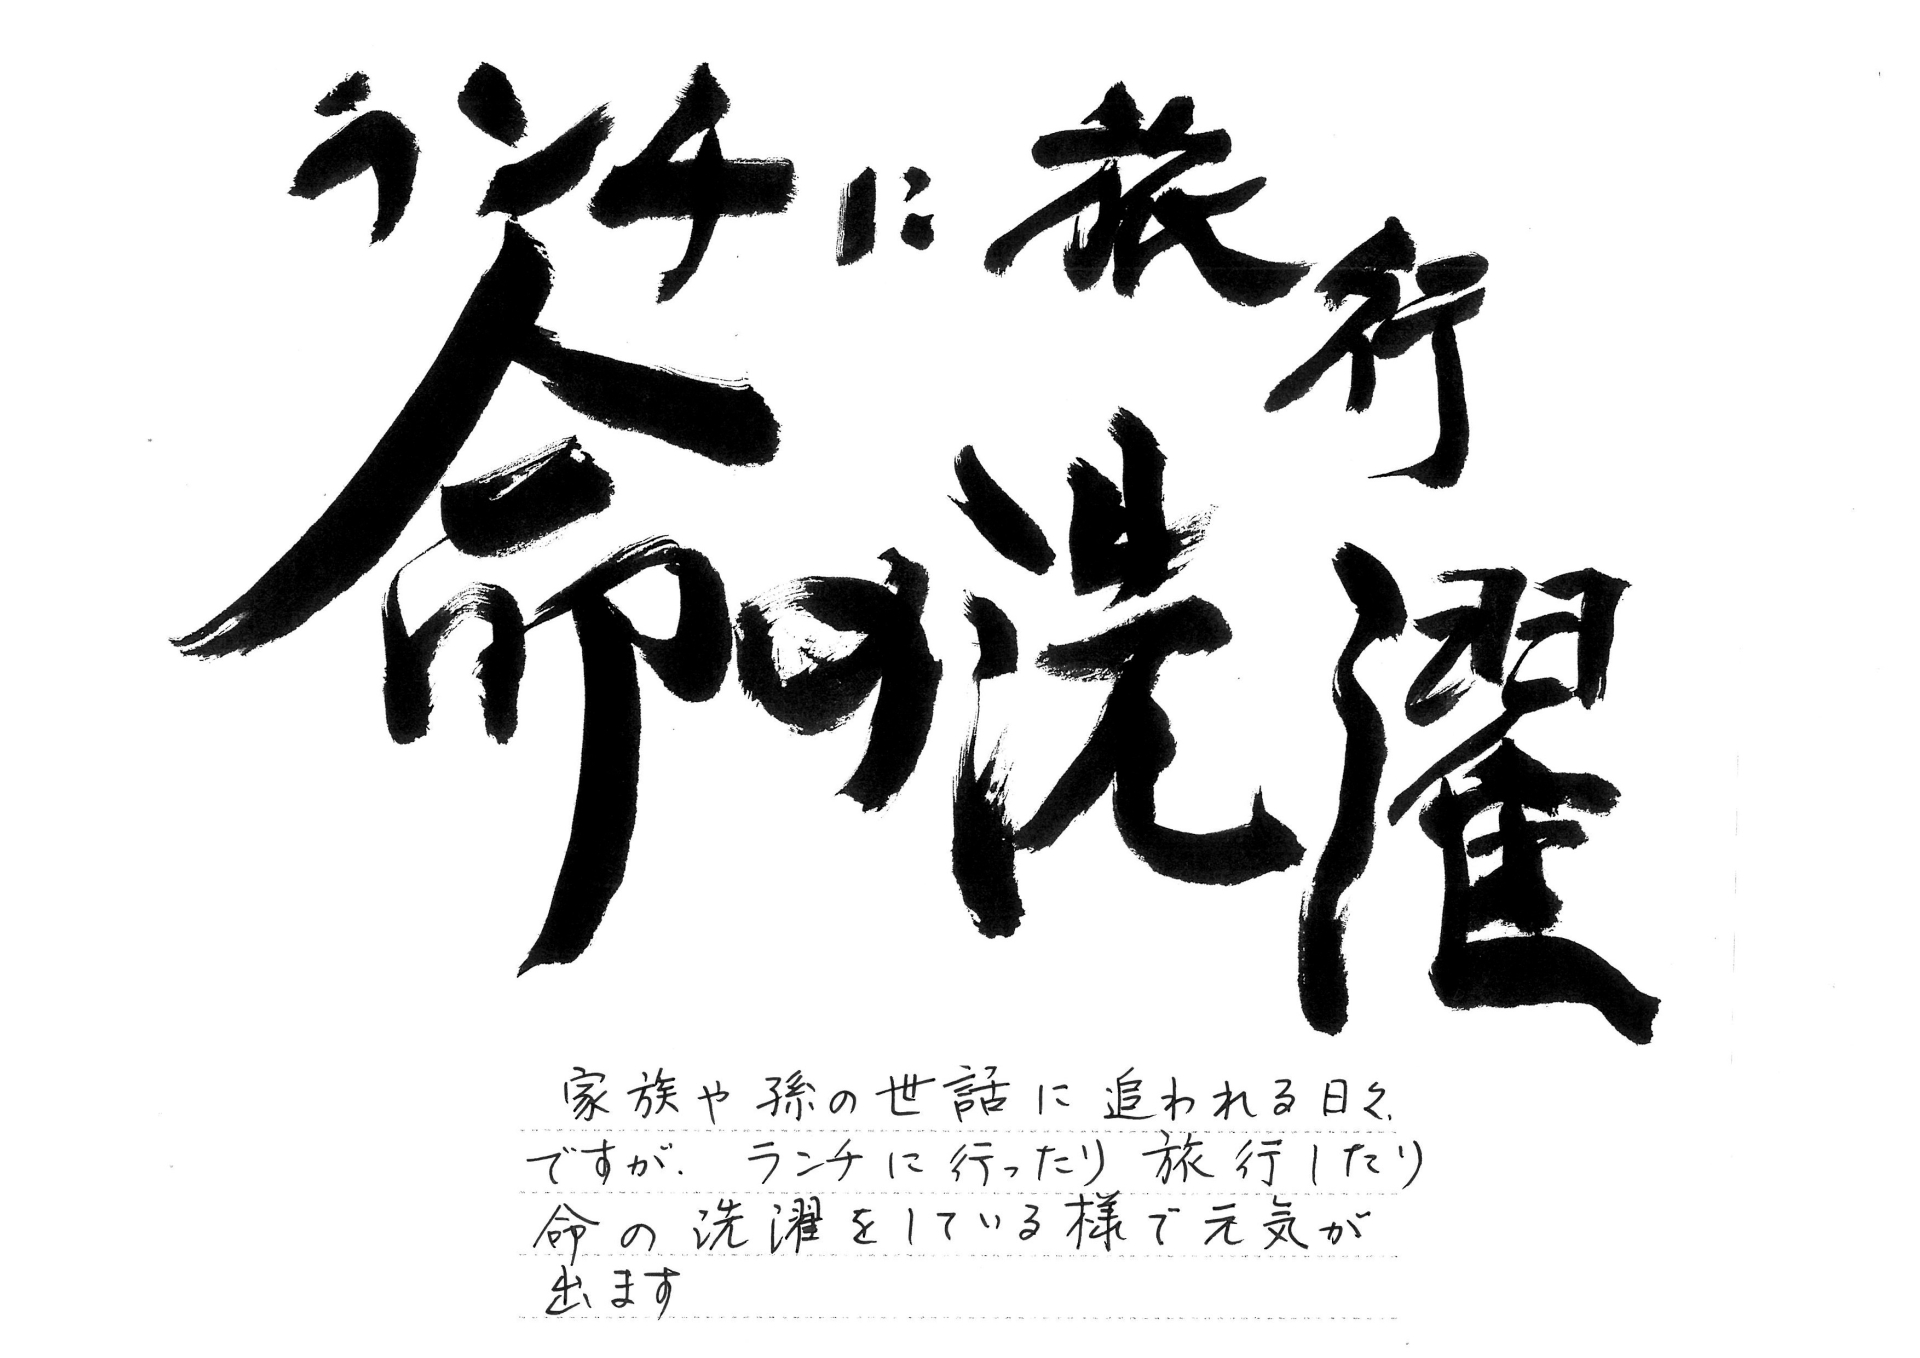 ランチに旅行
命の洗濯
家族や孫の世話に追われる日々
ですが、ランチに行ったり旅行したり
命の洗濯をしている様で元気が
出ます